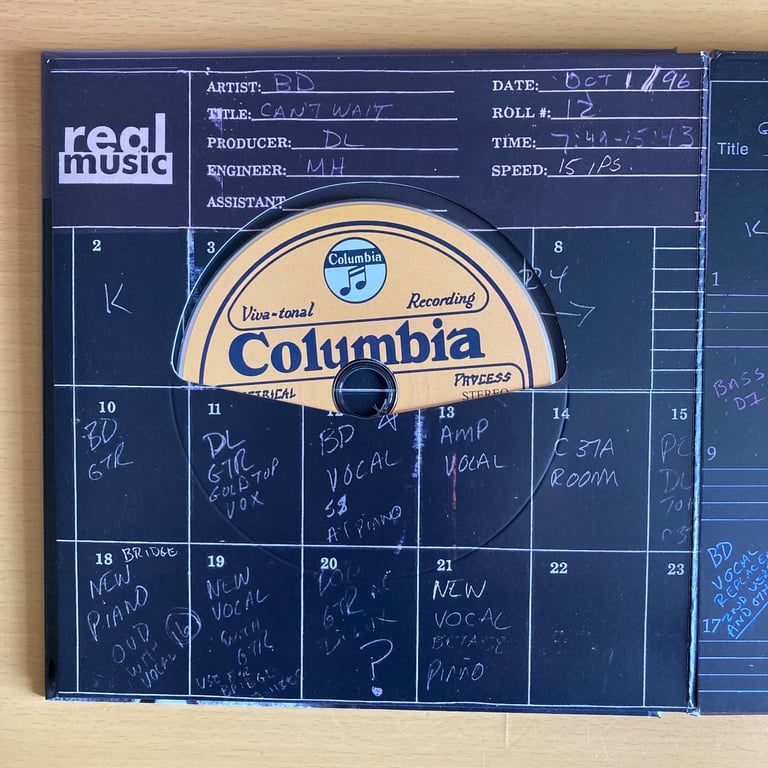 real
music
ARTIST: BD
TITLE: CAN'T WAIT
PRODUCER: DL
ENGINEER: MH
ASSISTANT
DATE: OCT 1/96
ROLL #: 12
TIME:
SPEED: 15 IPS.
Title
2
K
3
8
Columbia
Viva-tonal Recording
Columbia
PROCESS
STEREO
K
1
BASS
10
BD
GTR
11
DL
GTR
GOLD TOP
VOX
BD
VOCAL
58
AT PIANO
13
AMP
VOCAL
14
C37A
ROOM
15
9
18 BRIDGE
NEW
PIANO
OUD
WITH
VOCAL
16
19
NEW
VOCAL
WITH
GTR
USE FOR
BRIDGE
20
GTR
?
21
NEW
VOCAL
PIANO
22
23
BD
VOCAL
REPLACE
2ND VERSE
AND OTH
17